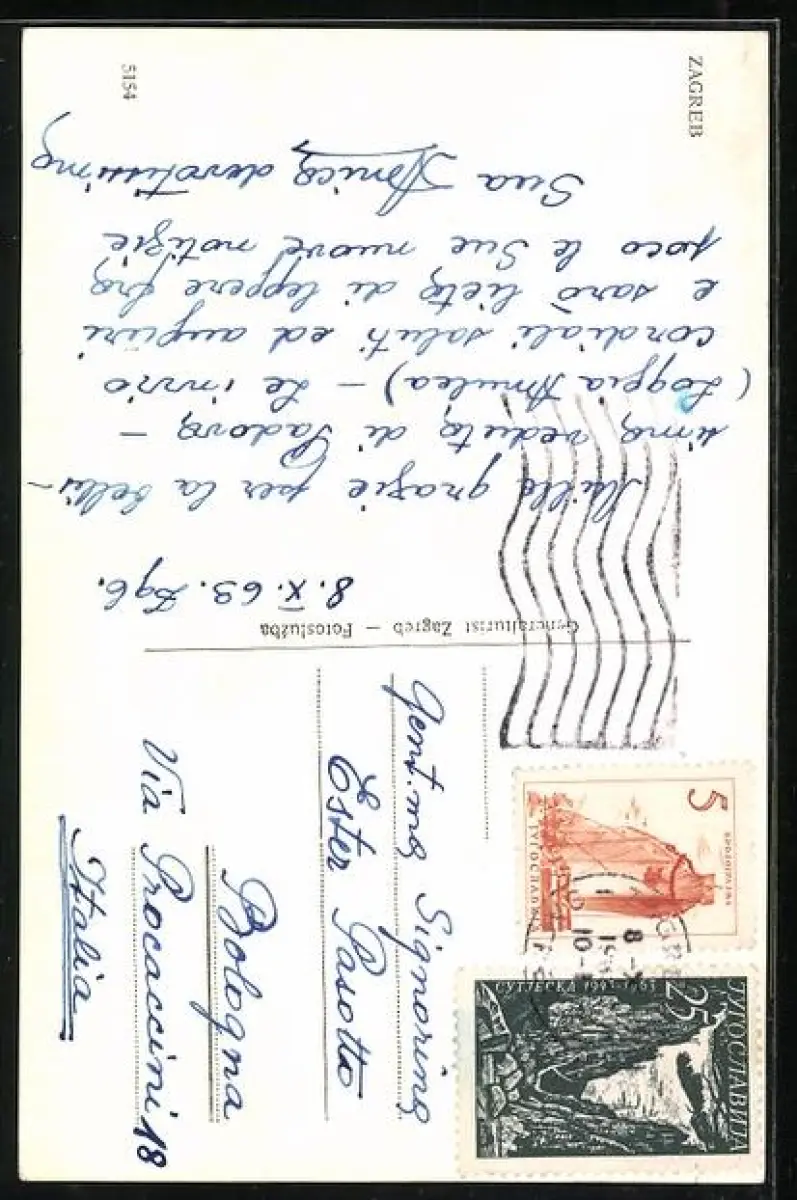 ZAGREB
5154
8. X. 63. Zgb.
Mille grazie per la bellis-
sima veduta di Padova -
(Loggia Amulea) - Le invio
cordiali saluti ed auguri
e sarò lieta di leggere fra
poco le Sue nuove notizie
Sua devotissima
Generalturist Zagreb — Fotoslužba
Gent.ma Signorina
Ester Pasotto
Bologna
Via Procaccini 18
Italia
5
БРОДОГРАДЊА
JУГОСЛАВИЈА
ЈУГОСЛАВИЈА
25
СУТЈЕСКА 1943-1963